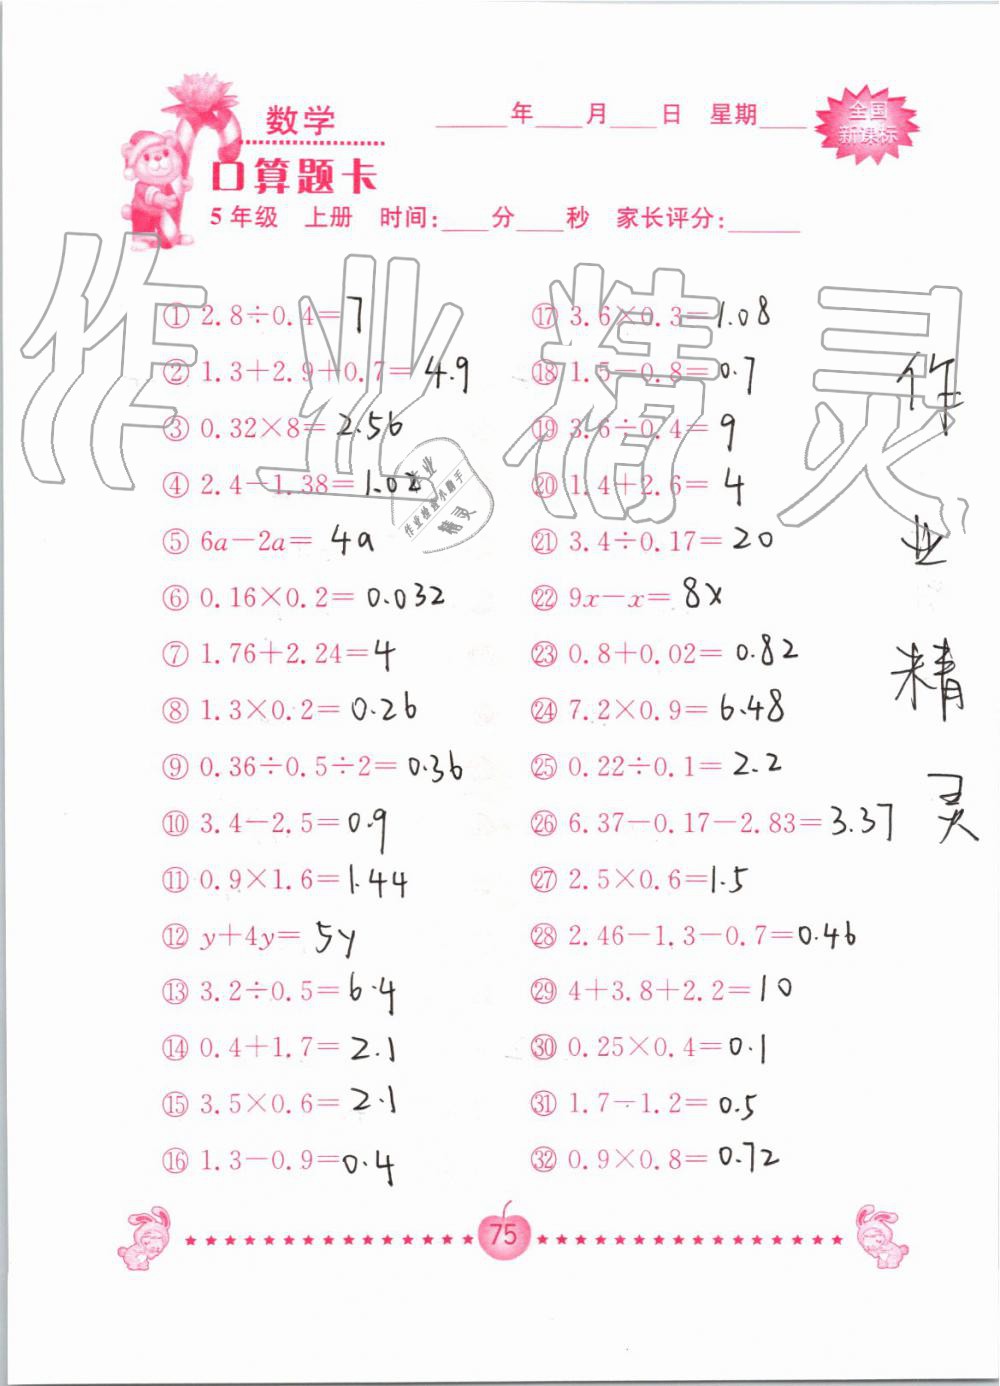 数学
____年____月____日 星期____
全国
新课标
口算题卡
5年级 上册 时间:____分____秒 家长评分:______
作业精灵
① 2.8÷0.4=7
② 1.3+2.9+0.7=4.9
③ 0.32×8=2.56
④ 2.4-1.38=1.02
⑤ 6a-2a=4a
⑥ 0.16×0.2=0.032
⑦ 1.76+2.24=4
⑧ 1.3×0.2=0.26
⑨ 0.36÷0.5÷2=0.36
⑩ 3.4-2.5=0.9
⑪ 0.9×1.6=1.44
⑫ y+4y=5y
⑬ 3.2÷0.5=6.4
⑭ 0.4+1.7=2.1
⑮ 3.5×0.6=2.1
⑯ 1.3-0.9=0.4
⑰ 3.6×0.3=1.08
⑱ 1.5-0.8=0.7
⑲ 3.6÷0.4=9
⑳ 1.4+2.6=4
㉑ 3.4÷0.17=20
㉒ 9x-x=8x
㉓ 0.8+0.02=0.82
㉔ 7.2×0.9=6.48
㉕ 0.22÷0.1=2.2
㉖ 6.37-0.17-2.83=3.37
㉗ 2.5×0.6=1.5
㉘ 2.46-1.3-0.7=0.46
㉙ 4+3.8+2.2=10
㉚ 0.25×0.4=0.1
㉛ 1.7-1.2=0.5
㉜ 0.9×0.8=0.72
作
业
精
灵
作业
作业检查小助手
精灵
75